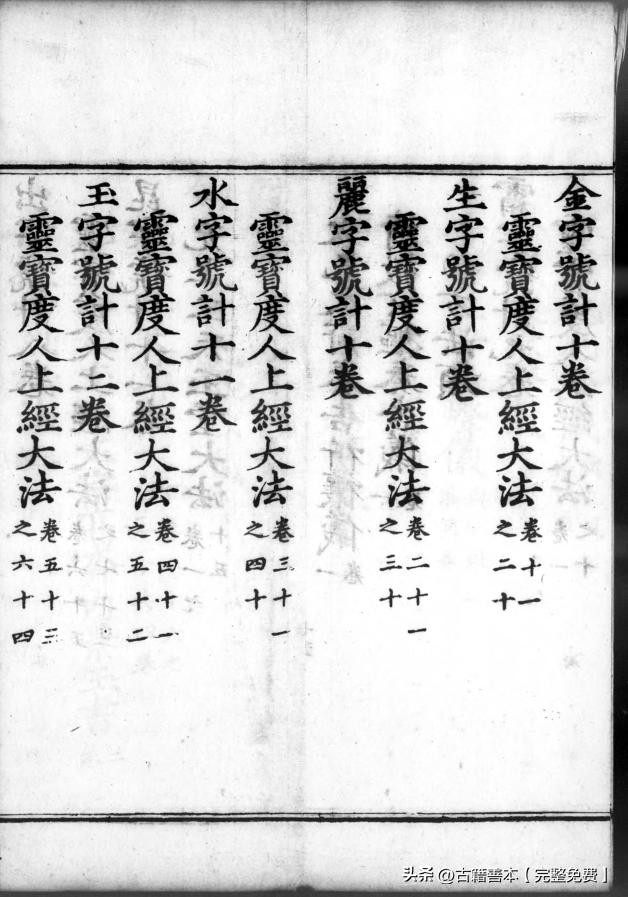 金字號計十卷
靈寶度人上經大法卷十一之二十
生字號計十卷
靈寶度人上經大法卷二十一之三十
麗字號計十卷
靈寶度人上經大法卷三十一之四十
水字號計十一卷
靈寶度人上經大法卷四十一之五十二
玉字號計十二卷
靈寶度人上經大法卷五十三之六十四
头条 @古籍善本【完整免费】